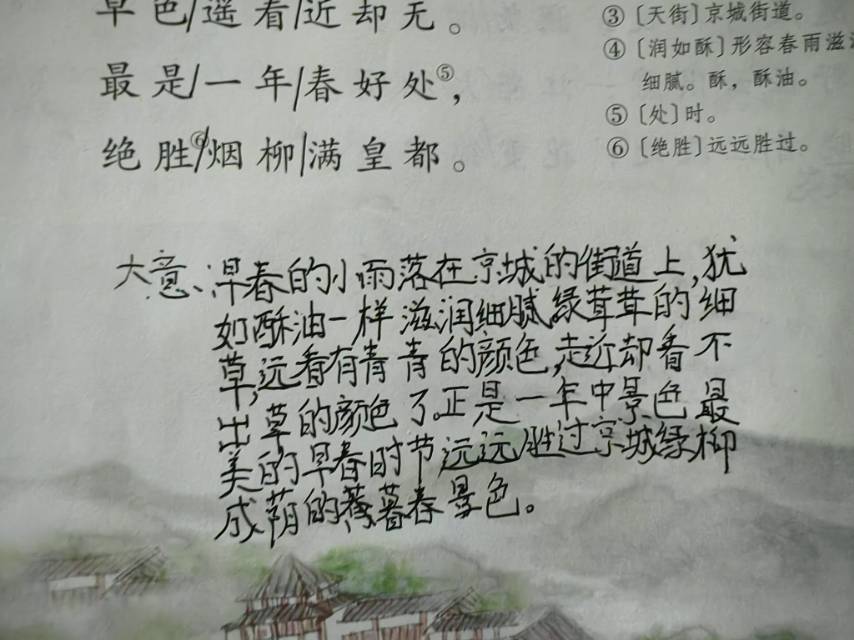 早色/遥看/近却无。
最是/一年/春好处⑤，
绝胜⑥/烟柳/满皇都。
③〔天街〕京城街道。
④〔润如酥〕形容春雨滋润
细腻。酥，酥油。
⑤〔处〕时。
⑥〔绝胜〕远远胜过。
大意、早春的小雨落在京城的街道上,犹
如酥油一样滋润细腻,绿茸茸的细
草,远看有青青的颜色,走近却看不
出草的颜色了。正是一年中景色最
美的早春时节远远胜过京城绿柳
成荫的暮春景色。